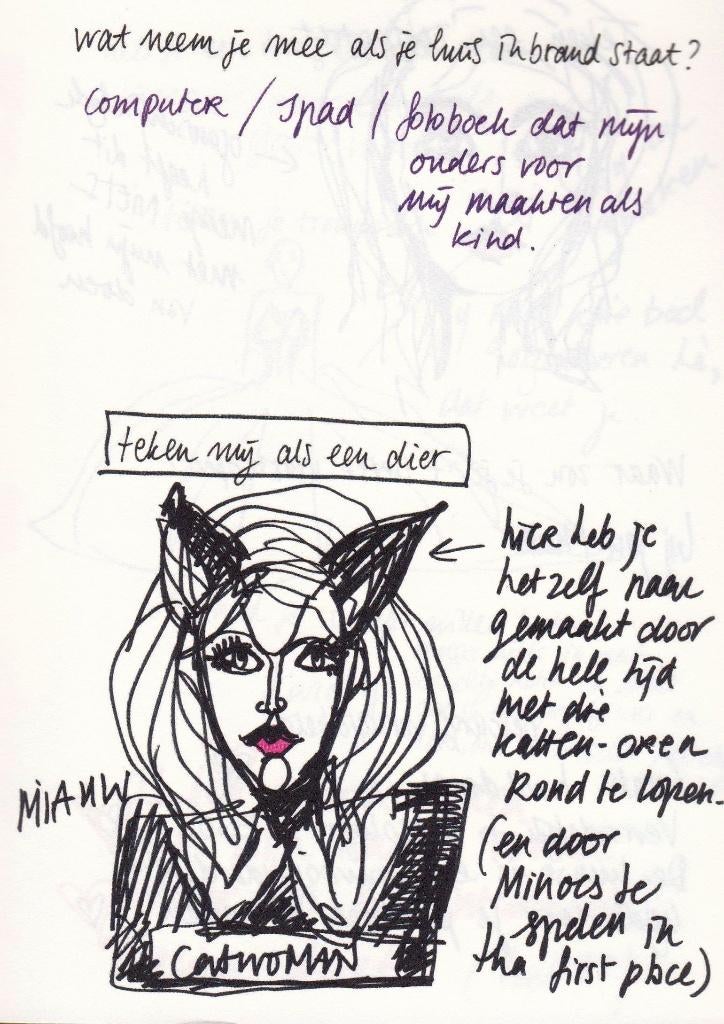 wat neem je mee als je huis in brand staat?
computer / Ipad / fotoboek dat mijn
ouders voor
mij maakten als
kind.
teken mij als een dier
hier heb je
het zelf naar
gemaakt door
de hele tijd
met die
katten-oren
rond te lopen.
(en door
Minoes te
spelen in
tha first place)
MIAUW
CATWOMAN